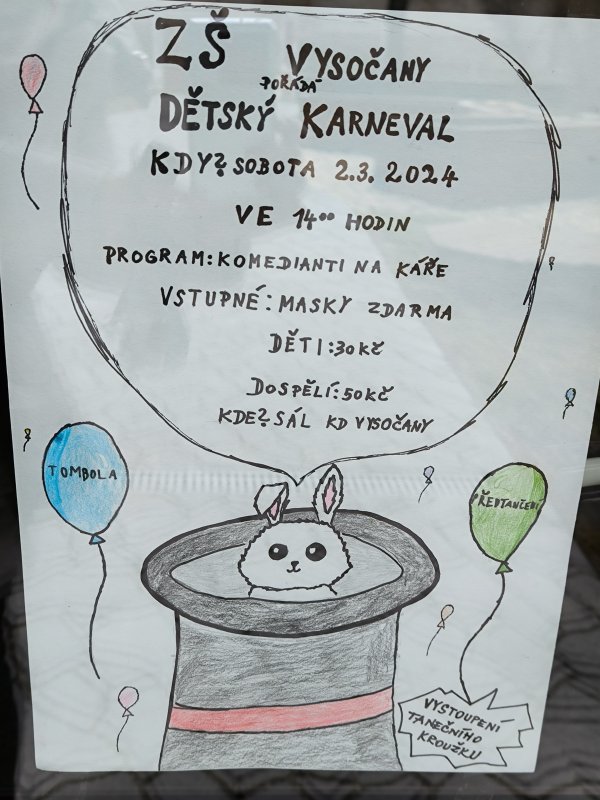 ZŠ VYSOČANY
POŘÁDÁ
DĚTSKÝ KARNEVAL
KDY? SOBOTA 2.3. 2024
VE 14⁰⁰ HODIN
PROGRAM: KOMEDIANTI NA KÁŘE
VSTUPNÉ: MASKY ZDARMA
DĚTI: 30 KČ
DOSPĚLÍ: 50 KČ
KDE? SÁL KD VYSOČANY
TOMBOLA
PŘEDTANČENÍ
VYSTOUPENÍ
TANEČNÍHO
KROUŽKU